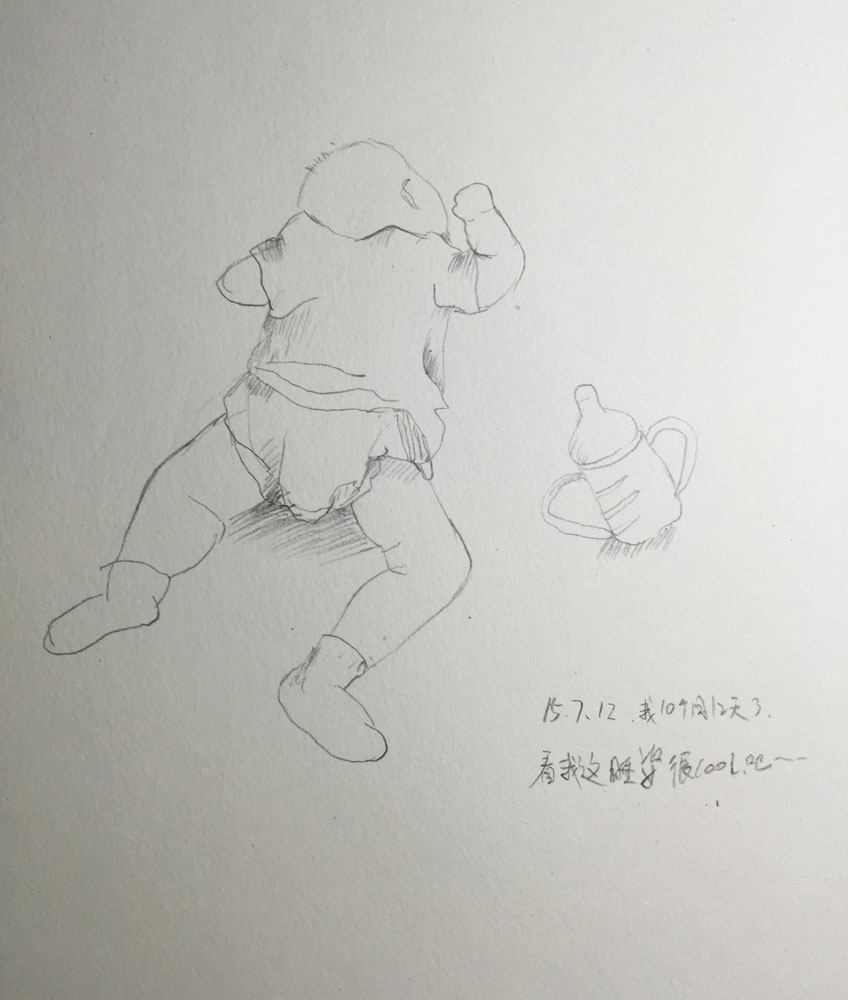 15.7.12 我10个月12天了.
看我这睡姿很COOL吧~~